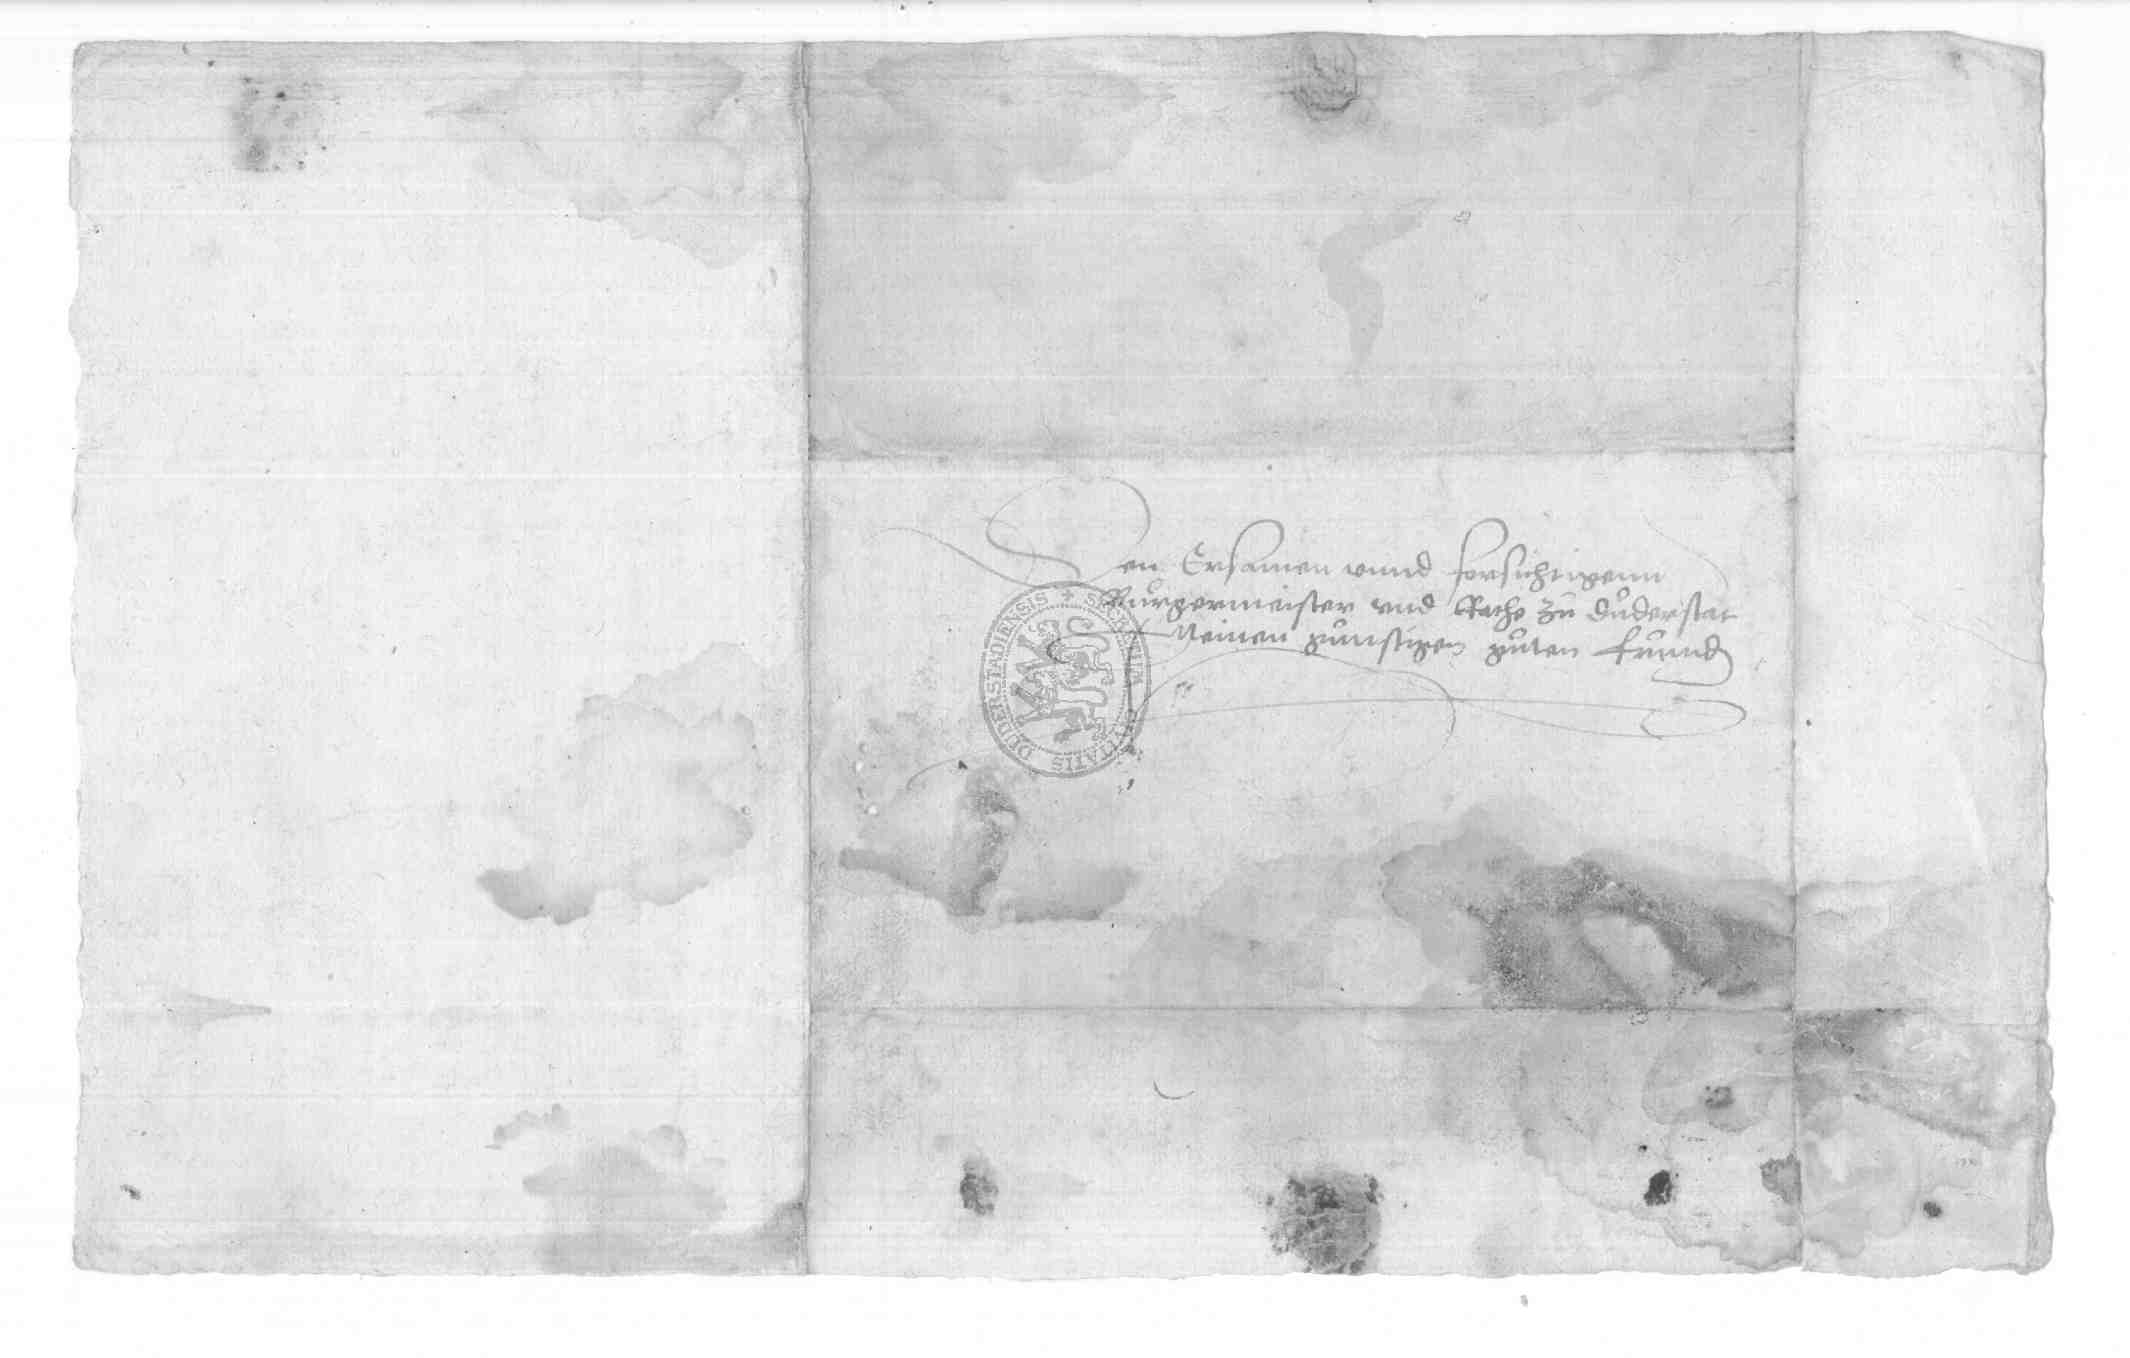 Den Ersamen vnnd forsichtigenn
Burgermeister vnd Rathe zu duderstat
Meinen gunstigen guten frund
SECRETUM CIVITATIS DUDERSTADIENSIS